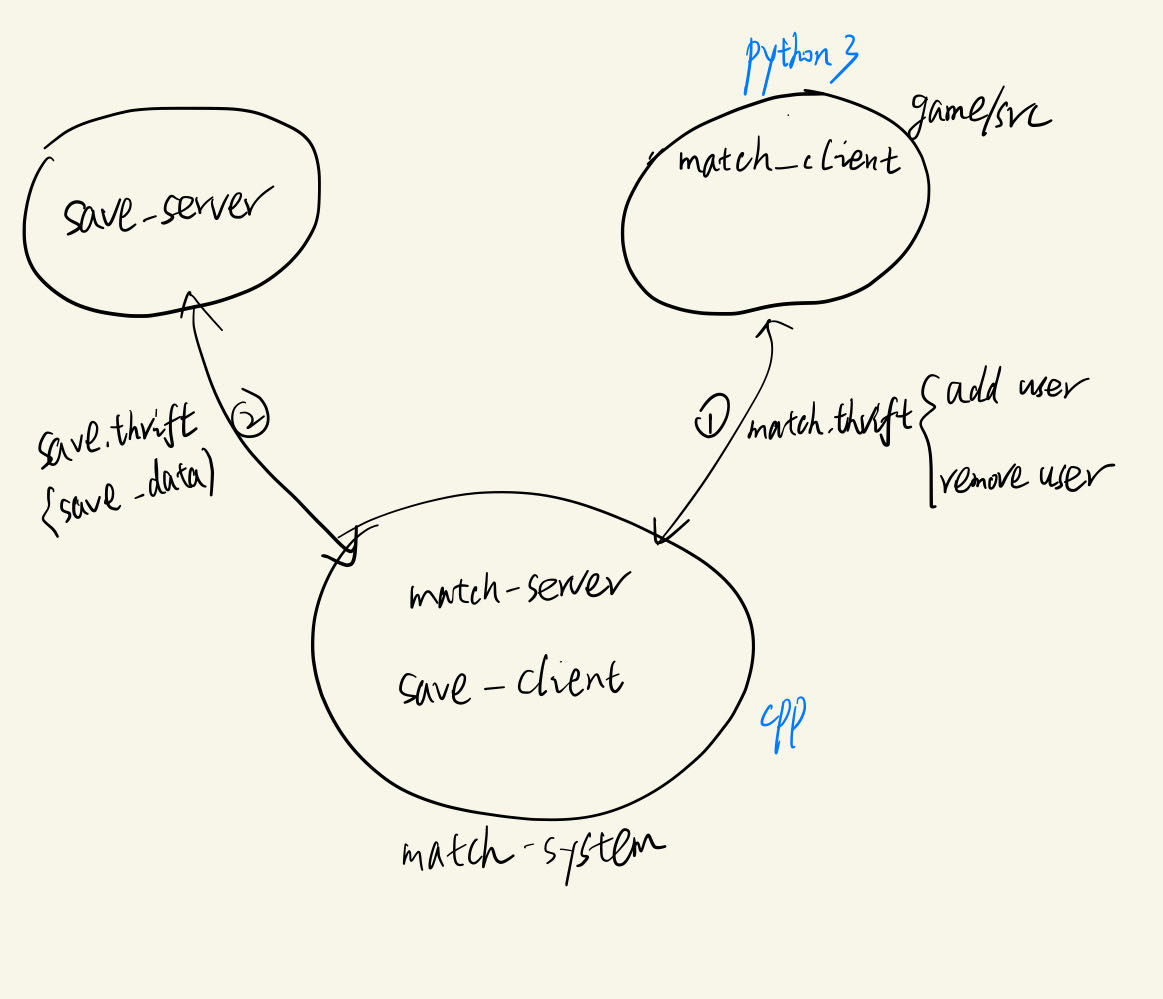 python3
game/src
match_client
save-server
②
save.thrift
{save-data}
①
match.thrift
add user
remove user
match-server
save-client
cpp
match-system